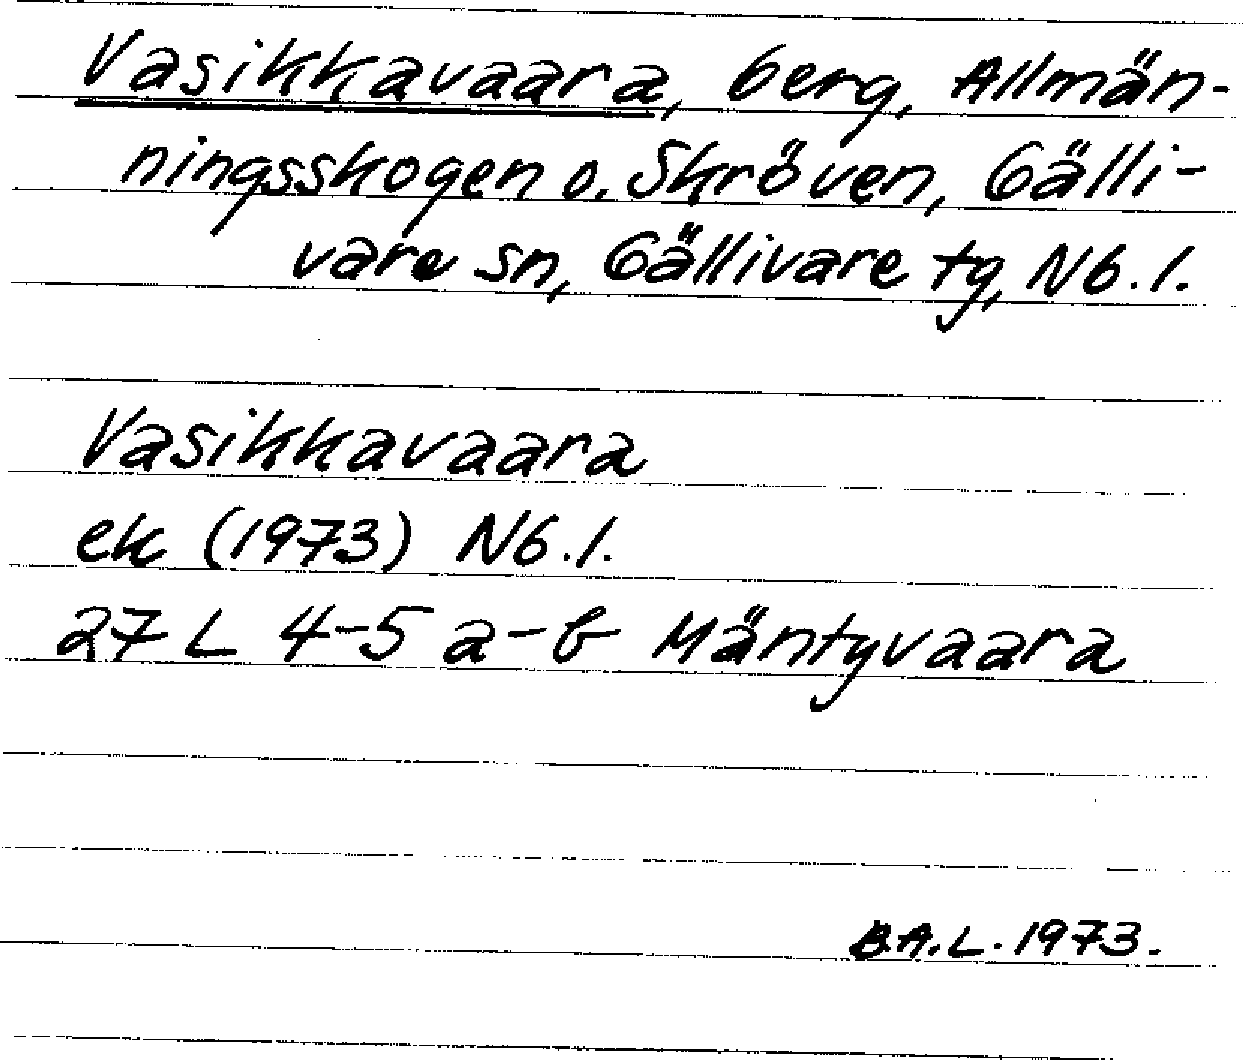 Vasikkavaara, berg, Allmän-
ningsskogen o. Skröven, Gälli-
vare sn, Gällivare tg, Nb. l.
Vasikkavaara
ek (1973) Nb. l.
27 L 4-5 a-b Mäntyvaara
B.A.L. 1973.